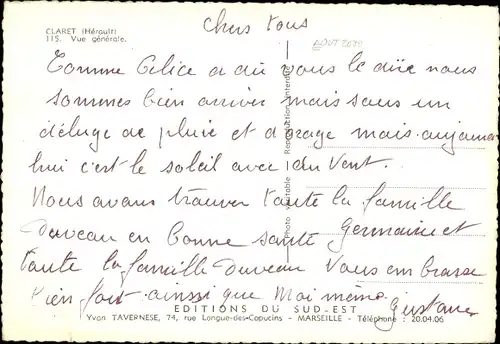 CLARET (Hérault)
115. Vue générale.
Chers tous
Comme Celice a dû vous le dire nous
sommes bien arrivés mais sous un
déluge de pluie et d'orage mais aujourd
hui c'est le soleil avec du Vent.
Nous avons trouver toute la famille
Duveau en bonne santé Germaine et
toute la famille Duveau Vous embrasse
bien fort ainsi que Moi même
Gustave
Photo véritable - Reproduction interdite
EDITIONS DU SUD-EST
Yvan TAVERNESE, 74, rue Longue-des-Capucins - MARSEILLE - Téléphone : 20.04.06